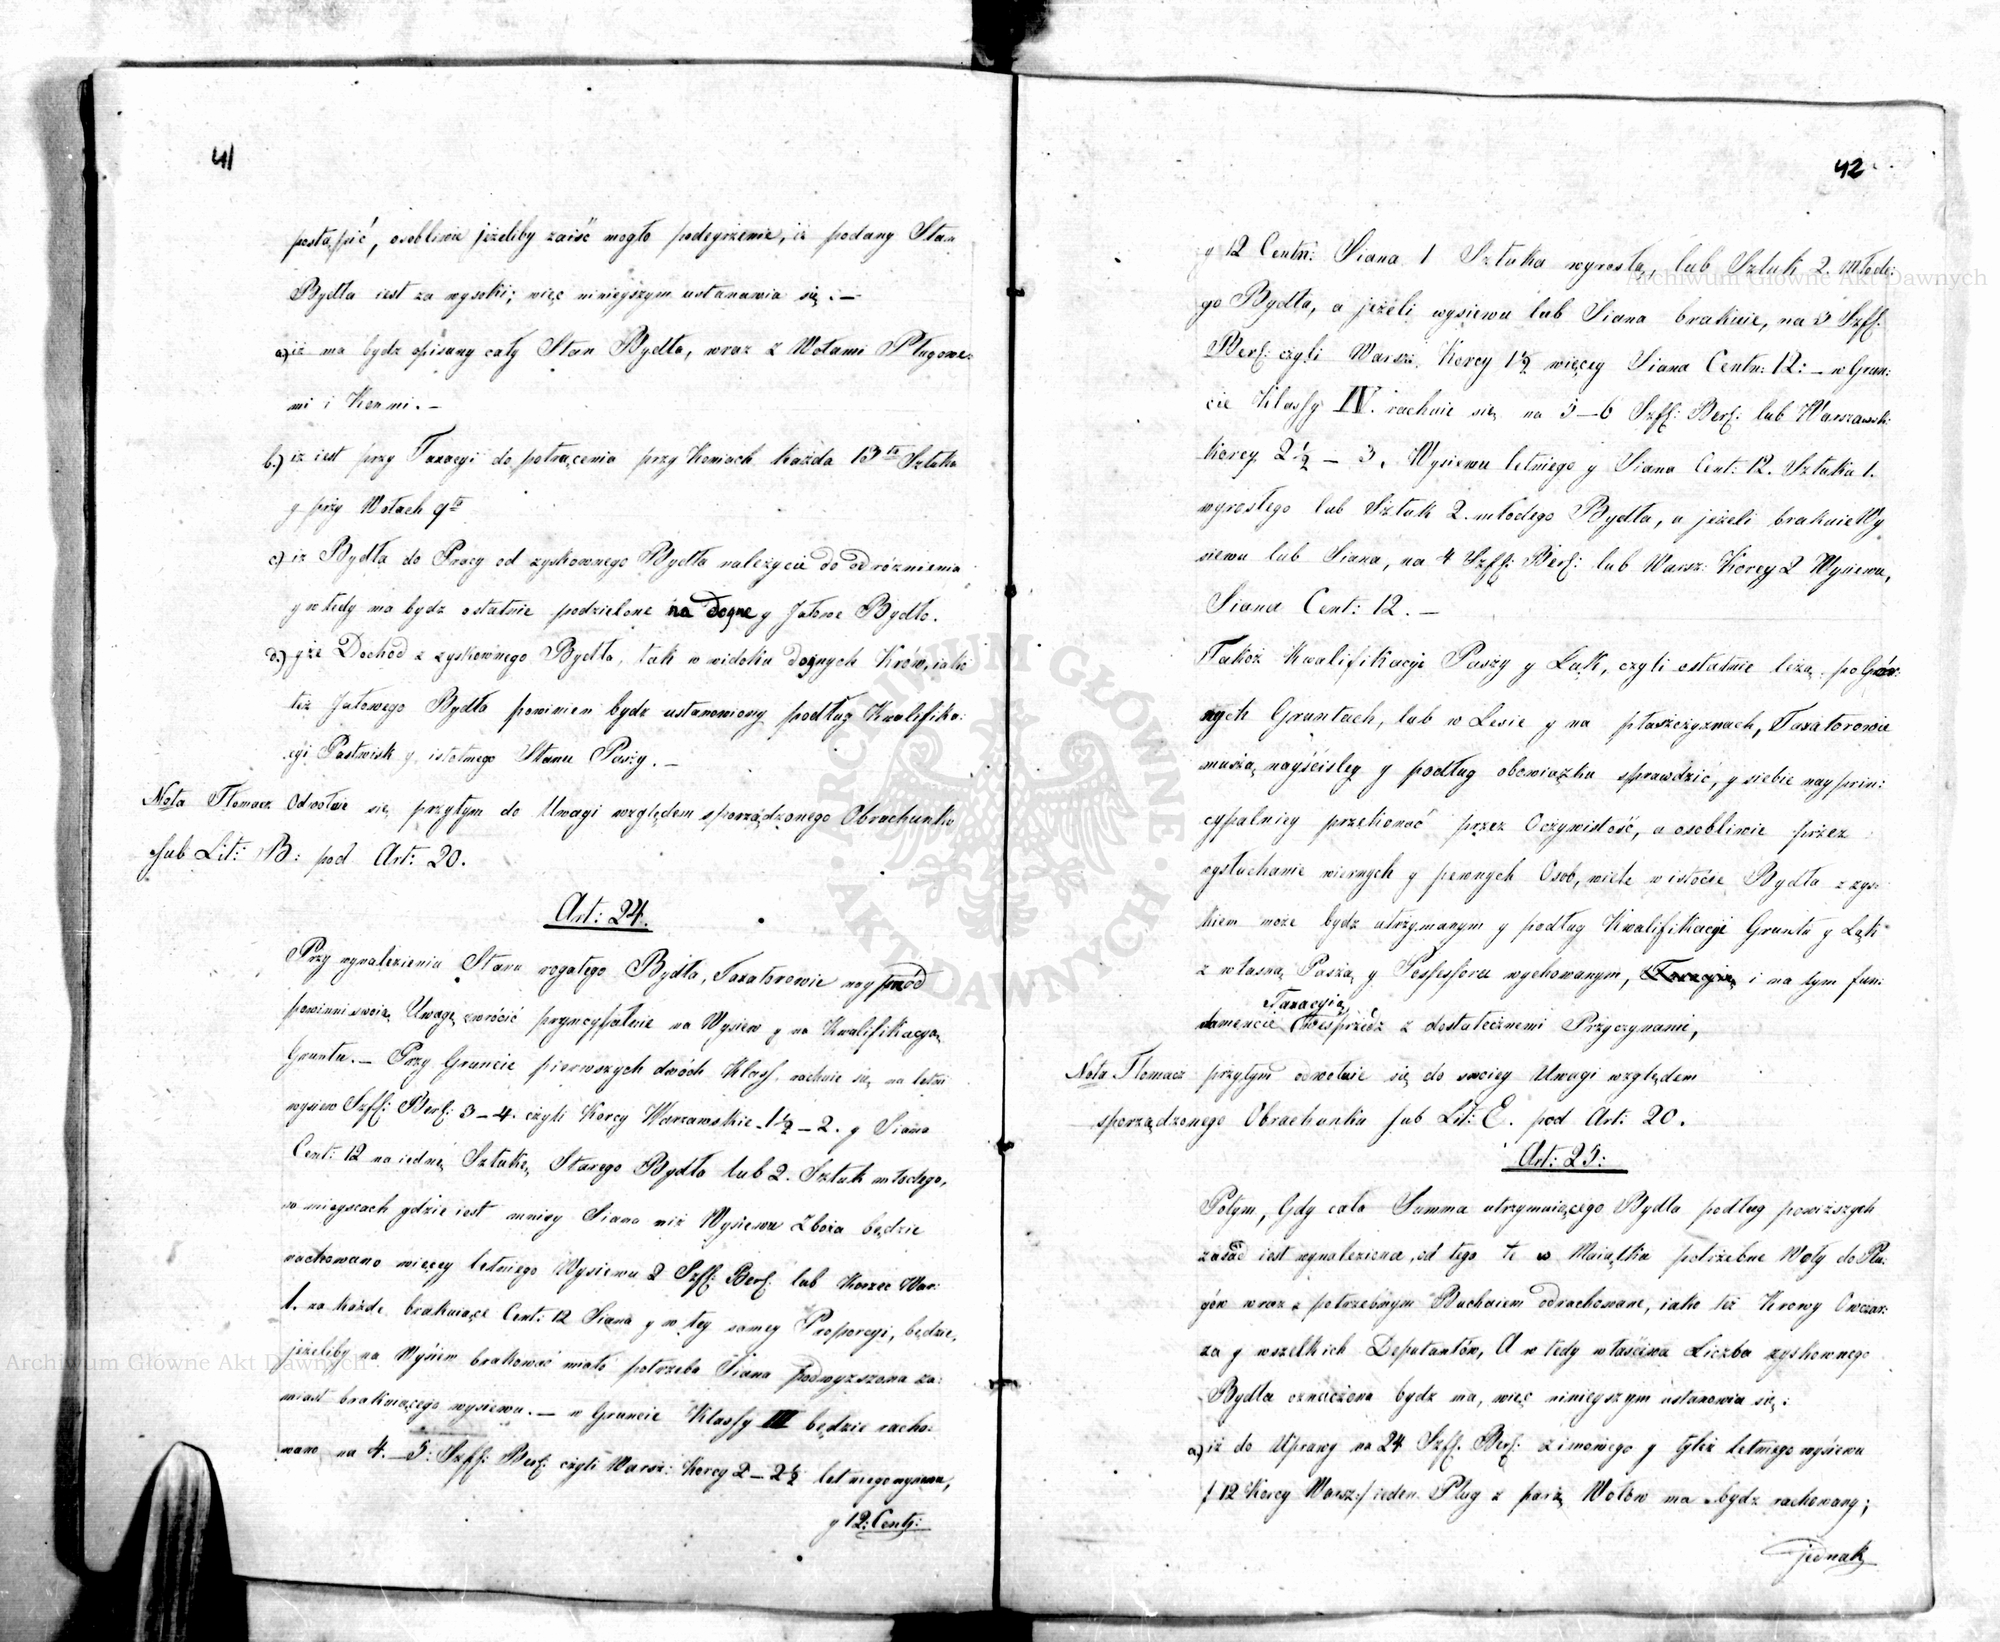 41
postąpić, osobliwie jeżeliby zaiść mogło podeyrzenie, iż podany Stan
Bydła iest za wysoki; więc ninieyszym ustanawia się: —
a) iż ma bydz opisany cały Stan Bydła, wraz z Wołami Pługowe-
mi i Konmi. —
b.) iż iest przy Taxacyi do potrącenia przy Koniach każda 13ta Sztuka
y przy Wołach 9ta
c) iż Bydła do Pracy od zyskownego Bydła należycie do odróżnienia
y wtedy ma bydz ostatnie podzielone na doyne y Jałowe Bydło.
d.) y że Dochod z zyskownego Bydła, tak w widoku doynych Krów, iako
też Jałowego Bydła powinien bydz ustanowiony podług Kwalifika:
cyi Pastwisk y istotnego Stanu Paszy. —
Nota Tłomacz Odwołuie się przytym do Uwagi względem sporządzonego Obrachunku
sub Lit: B: pod Art: 20.
Art: 24.
Przy wynalezieniu Stanu rogatego Bydła, Taxatorowie nayprzód
powinni swoię Uwagę zwrócić pryncypalnie na Wysiew y na Kwalifikacyą
Gruntu. — Przy Gruncie pierwszych dwóch Klass, rachuie się na letni
wysiew Szff: Berl: 3 – 4. czyli Korcy Warzawskie 1½ – 2. y Siana
Cent: 12 na iednę Sztukę Starego Bydła lub 2. Sztuk młodego,
w mieyscach gdzie iest mniey Siana niż Wysiewu Zboża będzie
rachowano więcey letniego Wysiewu 2 Szff: Berl: lub Korzec War:
1. za każde brakuiące Cent: 12 Siana y w tey samey Proporcyi, będzie,
jeżeliby na Wysiew brakować miało potrzeba Siana podwyższona za:
miast brakuiącego wysiewu. — w Gruncie Klassy III będzie racho:
wano na 4. – 5: Szff: Berl: czyli Warsz: Korcy 2 – 2½ letniego wysiewu,
y 12: Cent:
42
y 12 Centn: Siana 1 Sztuka wyrosła, lub Sztuk 2. młode:
go Bydła, a jeżeli wysiewu lub Siana brakuie, na 3 Szff:
Berl: czyli Warsz: Korcy 1½ więcey Siana Centn: 12: — w Grun:
cie Klassy IV. rachuie się na 5 – 6 Szff: Berl: lub Warszawsk:
Korcy 2½ – 3. Wysiewu letniego y Siana Cent: 12. Sztuka 1.
wyrosłego lub Sztuk 2. młodego Bydła, a jeżeli brakuie Wy
siewu lub Siana, na 4 Szff: Berl: lub Warsz: Korcy 2 Wysiewu,
Siana Cent: 12. —
Takoż Kwalifikacyi Paszy y Łąk, czyli ostatnie leżą po Gór:
nych Gruntach, lub w Lesie y na płaszczyznach, Taxatorowie
muszą nayściśley y podług obowiązku sprawdzić, y siebie nayprin:
cypalniey przekonać przez Oczywistość, a osobliwie przez
wysłuchanie wiernych y pewnych Osob, wiele w istocie Bydła z zys:
kiem może bydz utrzymanym y podług Kwalifikacyi Gruntu y Łąk
z własną Paszą y Possessora wychowanym, i na tym fun:
Taxacyią
damencie poprzedz z dostatecznemi Przyczynami,
Nota Tłomacz przytym odwołuie się do swoiey Uwagi względem
sporządzonego Obrachunku sub Lit: E. pod Art: 20.
Art: 25:
Potym, Gdy cała Summa utrzymuiącego Bydła podług powyższych
zasad iest wynaleziona, od tego te w Maiątku potrzebne Woły do Płu:
gów wraz z potrzebnym Buchaiem odrachowane, iako też Krowy Owczar:
za y wszelkich Deputantów, A w tedy właściwa Liczba zyskownego
Bydła oznaczona bydz ma, więc ninieyszym ustanowia się:
a) iż do Uprawy na 24 Szff: Berl: zimowego y tyleż letniego wysiewu
/12 Korcy Warsz:/ ieden Pług z parą Wołów ma bydz rachowany;
jednak